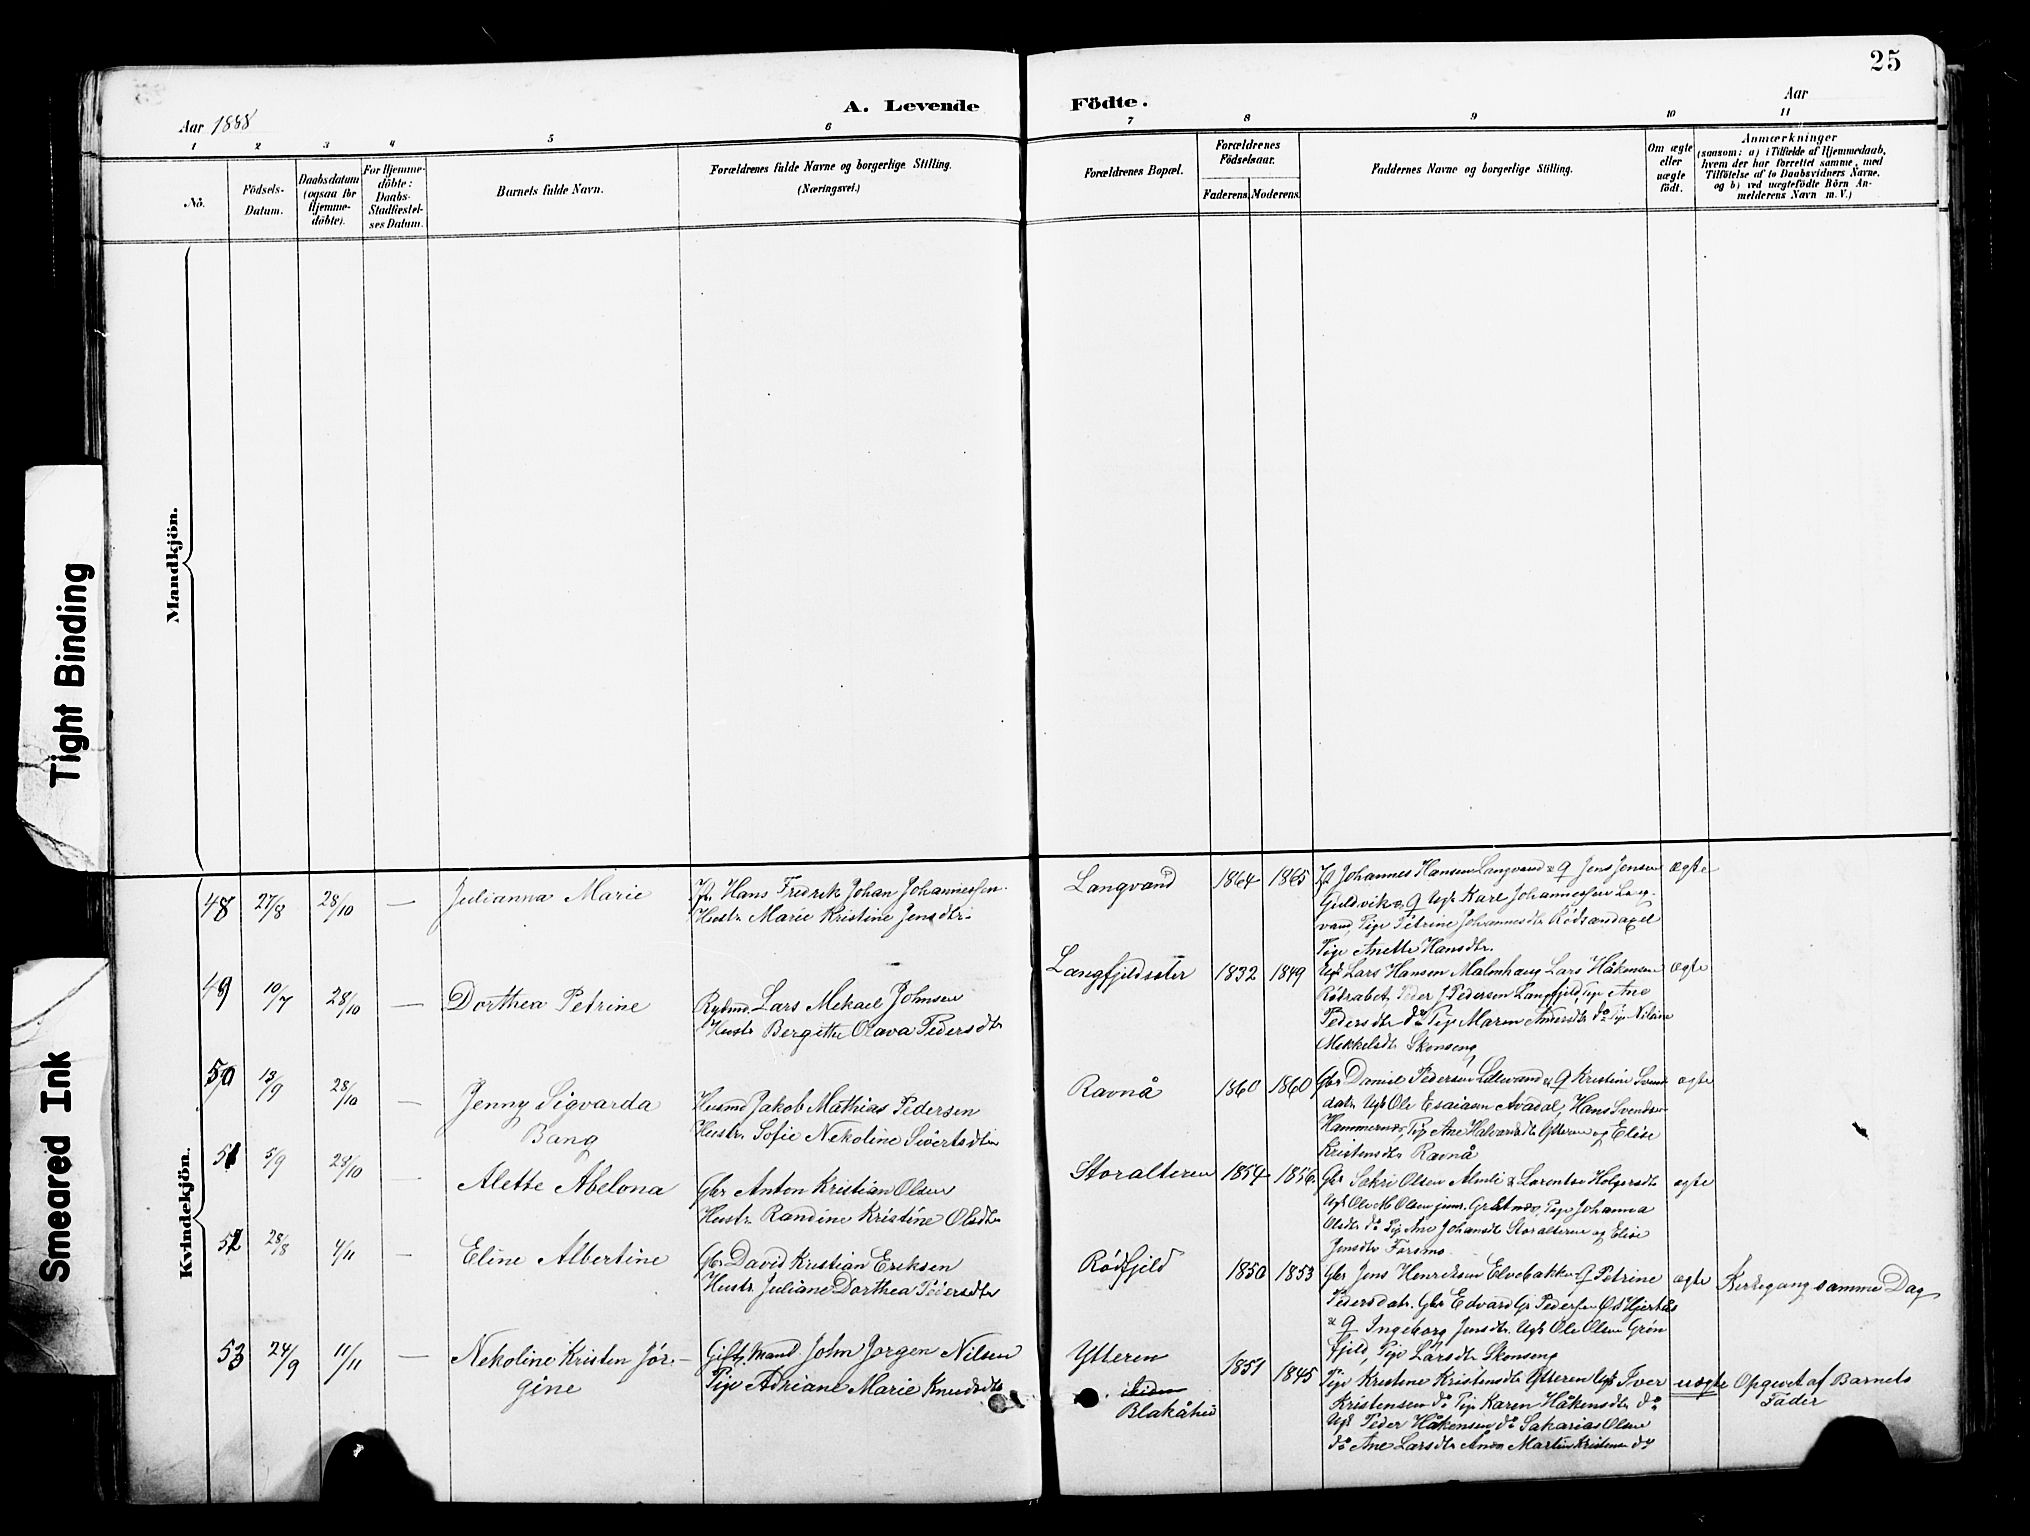 25
A. Levende Födte.
Aar 1888
Aar
1 2 3 4 5 6 7 8 9 10 11
No.
Födsels-Datum.
Daabsdatum (ogsaa for Hjemmedöbte).
For Hjemmedöbte: Daabs-Stadfæstelses Datum.
Barnets fulde Navn.
Forældrenes fulde Navne og borgerlige Stilling.
(Næringsvei.)
Forældrenes Bopæl.
Forældrenes Födselsaar.
Faderens. Moderens.
Faddernes Navne og borgerlige Stilling.
Om ægte eller uægte födt.
Anmærkninger
(saasom: a) i Tilfælde af Hjemmedaab, hvem der har forrettet samme, med Tilföielse af to Daabsvidners Navne, og b) ved uægtefödte Börn Anmelderens Navn m. V.)
Mandkjön.
Kvindekjön.
Tight Binding
Smeared Ink
48 27/8 28/10 — Julianna Marie
Hans Fredrik Johan Johannessen
Hustr. Marie Kristine Jensdtr.
Langvand 1864 1865
Johannes Hansen Langvand & Q Jens Jensen
Guldvik & Q Ugk Karl Johannessen Lang-
vand, Pige Petrine Johannesdtr Rödsandaxel
Pige Anette Hansdtr.
ægte
49 10/7 28/10 — Dorthea Petrine
Rydmd. Lars Mekael Johnsen
Hustr Bergitte Olava Pedersdtr
Langfjeldsæter 1832 1849
Ugk Lars Hansen Malmhaug Lars Håkensen
Rödrabet, Peder J Pedersen Langfjeld, Pige Ane
Pedersdtr do Pige Maren do Pige
Mekkelsdtr Skonseng
ægte
50 13/9 28/10 — Jenny Sigvarda
Bang
Husmd Jakob Mathias Pedersen
Hustr. Sofie Nekoline Sivertsdtr
Ravnå 1860 1860
Gbr Daniel Pedersen Lillevand & Q Kristine Svends
datr Ugk Ole Esaiasen Avadal, Hans Svendsen
Hammernæs, Pig Ane Halvorsdtr Ytteren og Elise
Kristensdtr Ravnå
ægte
51 5/9 28/10 — Alette Abelona
Gbr Anton Kristian Olsen
Hustr. Randine Kristine Olsdtr
Storalteren 1854 1856
Gbr Sakri Olsen & Larentse Holgersdtr
Ugk Ole M Olsen junr. Pige Johanna
Olsdtr do Pig Ane Johansdtr Storalteren og Elise
Jensdtr Forsmo
ægte
52 28/8 4/11 — Eline Albertine
Gbr David Kristian Eriksen
Hustr. Juliane Dorthea Pedersdtr
Rödfjeld 1850 1853
Gbr Jens Henriksen Elvebakken Q Petrine
Pedersdatr. Gbr Edvard Gr Pedersen
& Q Ingeborg Jensdtr. Ugk Ole Olsen Grön
fjeld, Pige Larsdtr Skonseng
ægte Kirkegang samme Dag
53 24/9 11/11 — Nekoline Kristen Jör-
gine
Gift Mand John Jorgen Nilsen
Pige Adriane Marie Knudsdtr
Ytteren
Blakåhei
1851 1845
Pige Kristine Kristensdtr Ytteren Ugk Iver
Kristensen do Pig Karen Håkensdtr do
Ugk Peder Håkensen do Sakarias Olsen
do Ane Larsdtr Martin Kristensen do
uægte Opgivet af Barnets
Fader